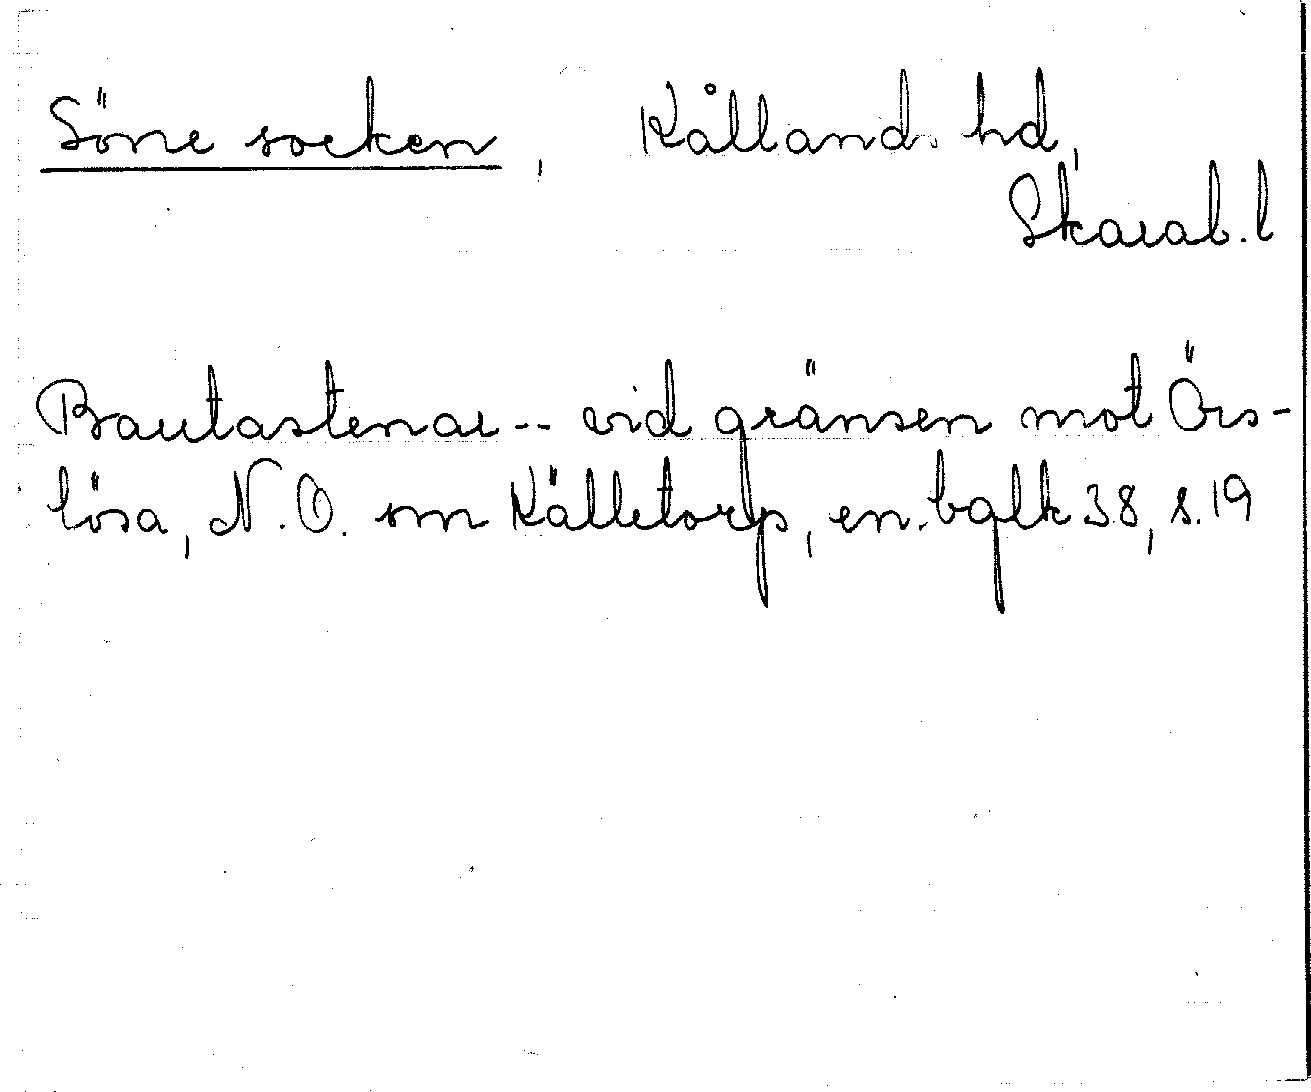 Söne socken, Kålland. hd,
Skarab. l
Bautastenar -- vid gränsen mot Örs-
lösa, N.O. om Källetorp, en. bglk 38, s. 19